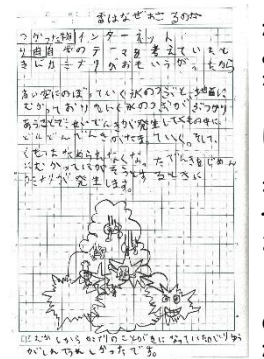 雷はなぜおきるのか
つかった物インターネット
り由自学のテーマを考えていたと
きにカミナリがおもいうかったから
高い空にのぼっていく氷のつぶと、地面に
むかっておりていく氷のつぶがぶつかり
あうことでせいでんきが発生してくもの中に
どんどんでんきがたまっていく。そして、
くもにためられなくなったでんきをじめん
にむかってほうそうするときに
カミナリが発生します。
むかしからかみなりのことがきになっていたのでりゆう
がしれてうれしかったです。